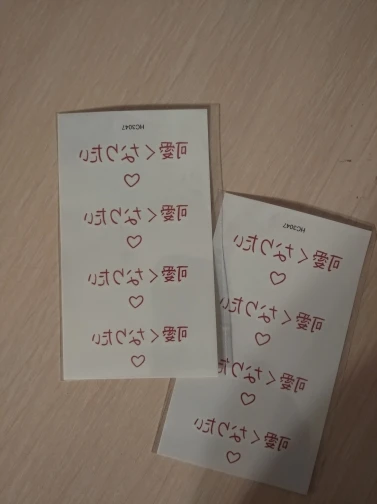 HC3047
可愛くなりたい
♡
可愛くなりたい
♡
可愛くなりたい
♡
可愛くなりたい
♡
HC3047
可愛くなりたい
♡
可愛くなりたい
♡
可愛くなりた
♡
可愛くなりたい
♡